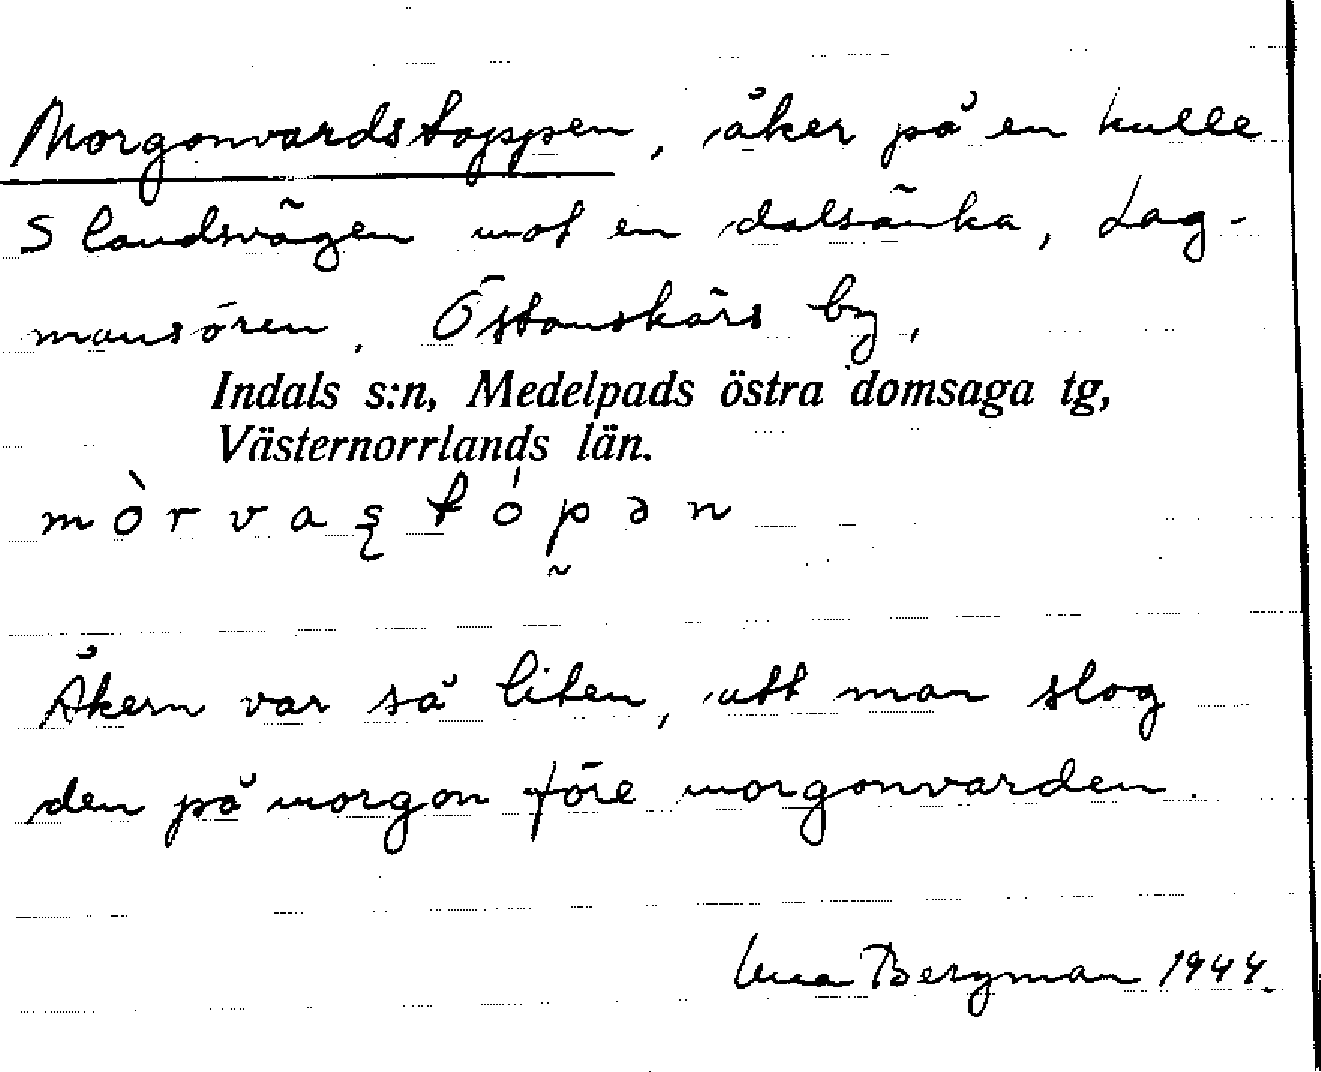 Morgonvardstoppen, åker på en kulle
S landsvägen mot en dalsänka, Lag-
mansören. Östanskärs by,
Indals s:n, Medelpads östra domsaga tg,
Västernorrlands län.
mòrvaʂtópən
Åkern var så liten, att man slog
den på morgon före morgonvarden.
Bergman 1944.